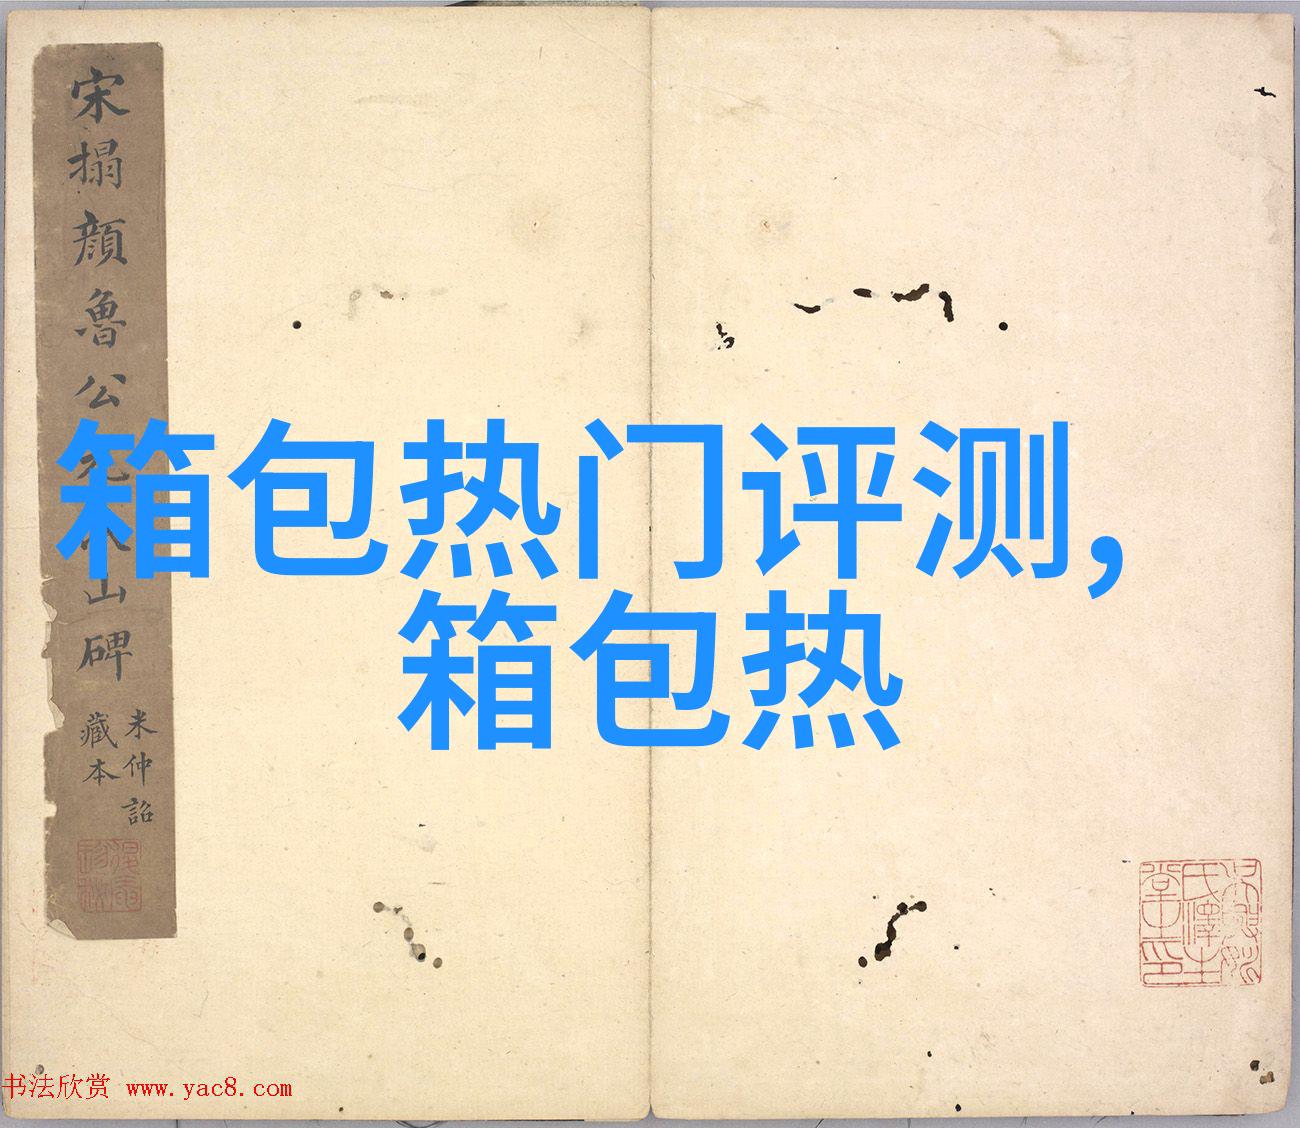 宋搨顔魯公
山碑
米仲詔
藏本
箱包热门评测,
箱包热
书法欣赏 www.yac8.com